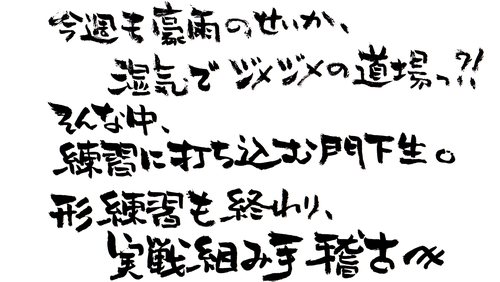 今週も豪雨のせいか、
湿気でジメジメの道場っ?!
そんな中、
練習に打ち込む門下生。
形練習も終わり、
実戦組み手稽古〜